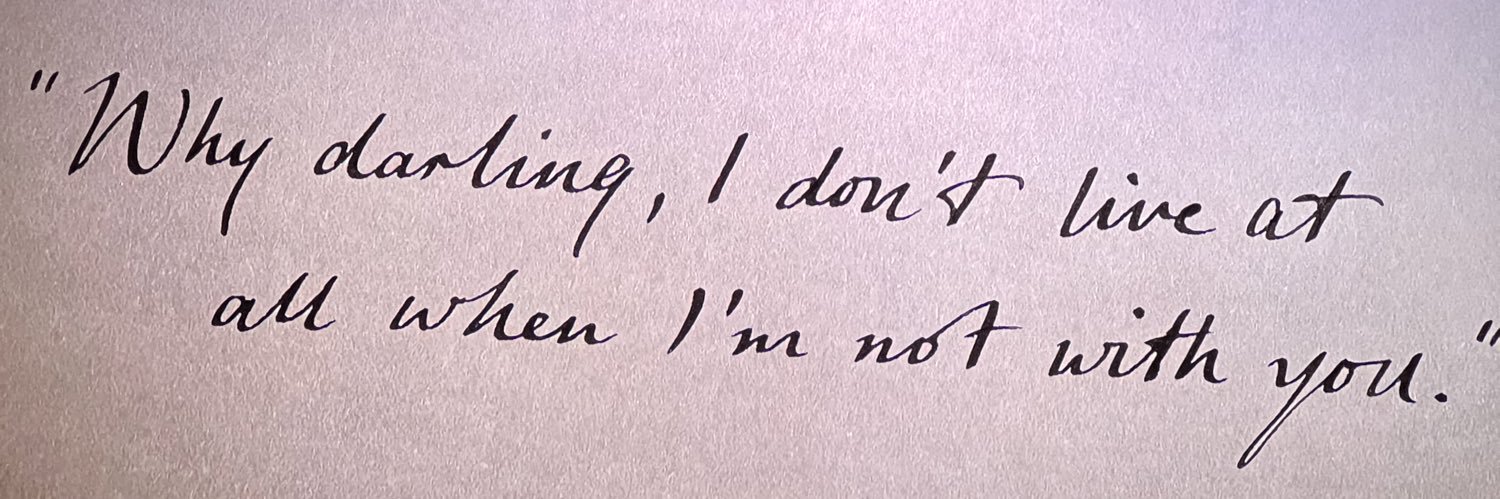 "Why darling, I don't live at
all when I'm not with you."